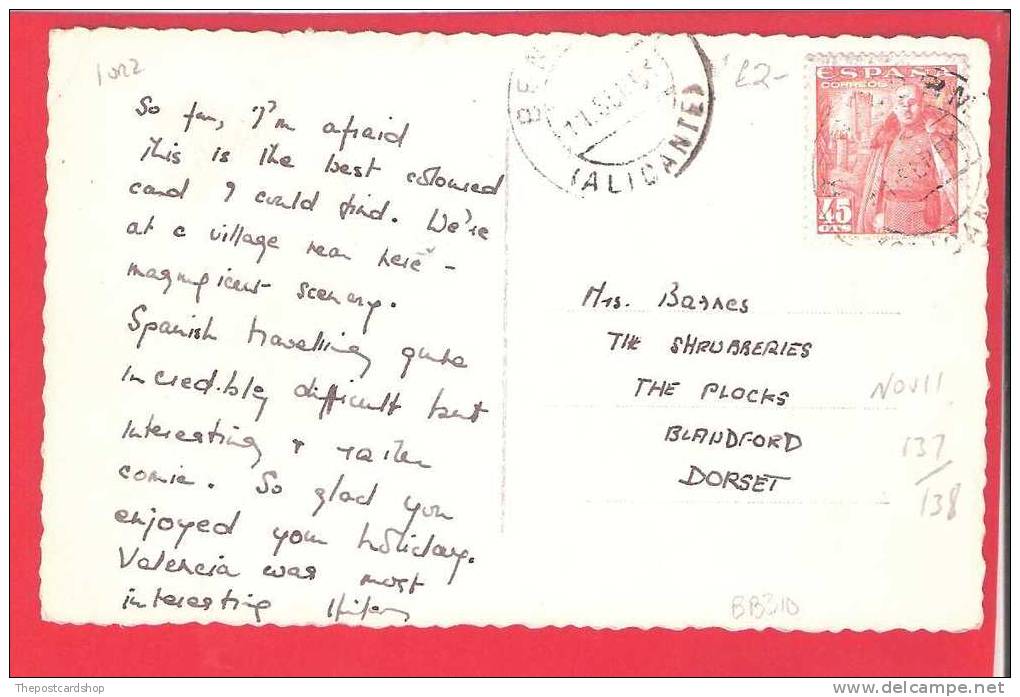 1022
So far, I'm afraid
this is the best coloured
card I could find. We're
at a village near here -
magnificent scenery.
Spanish travelling quite
incredibly difficult but
interesting & rather
comic. So glad you
enjoyed your holiday.
Valencia was most
interesting
(ALICANTE)
£2-
ESPAÑA
CORREOS
45
CTS
Mrs. Barnes
THE SHRUBBERIES
THE PLOCKS
BLANDFORD
DORSET
NOV11
137/
138
BB310
Thepostcardshop
www.delcampe.net